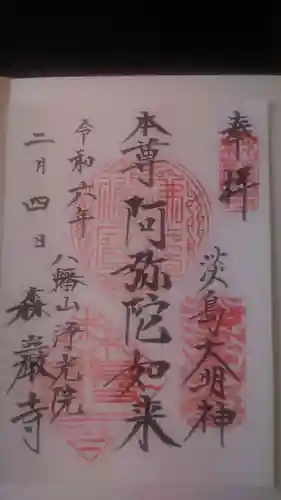 奉拝
淡島大明神
本尊 阿弥陀如来
令和六年
二月四日
八幡山浄光院
森巖寺